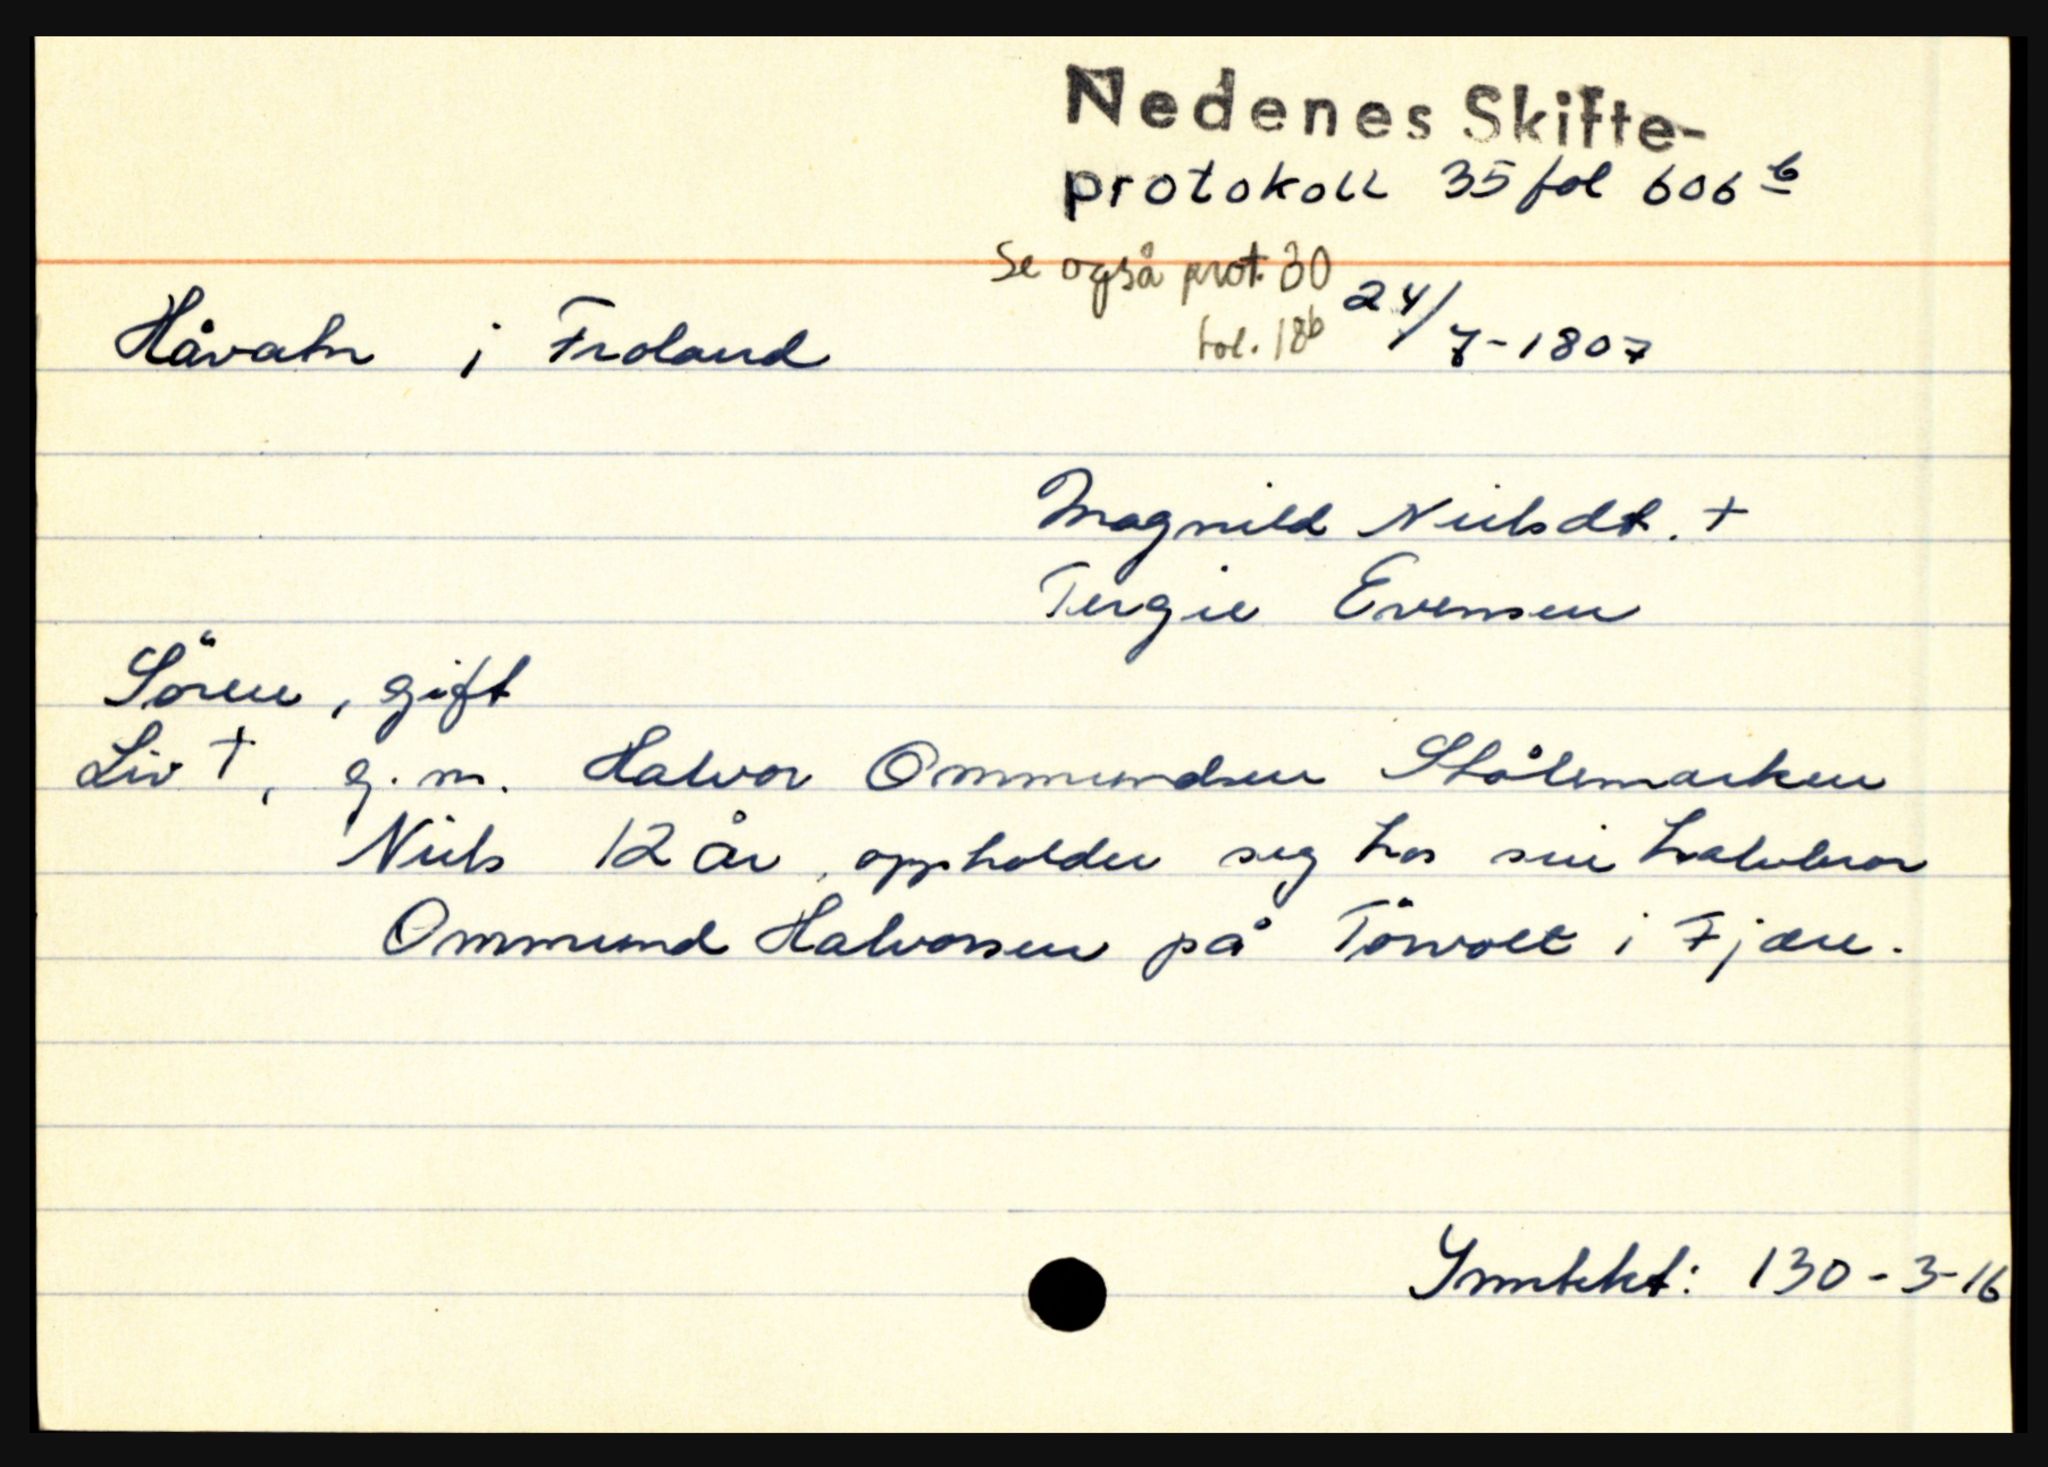 Nedenes Skifte-
protokoll 35 fol 606 b
Se også prot. 30
fol. 18b
24/7-1807
Håvatn i Froland
Magnild Nielsdt. +
Tergie Evensen
Sören, gift
Liv +, g. m. Halvor Ommundsen Stålemarken
Niels 12 år, oppholder seg hos sin halvbror
Ommund Halvorsen på Törvolt i Fjære.
Inntekt: 130-3-16